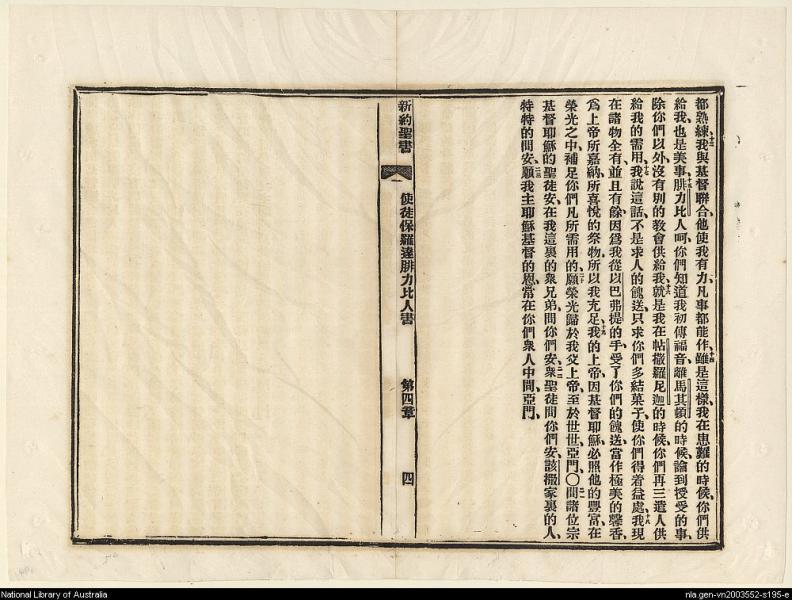 都熟練、我與基督聯合、他使我有力、凡事都能作、雖是這樣、我在患難的時候、你們供
給我、也是美事、腓力比人呵、你們知道我初傳福音、離馬其頓的時候、論到授受的事、
除你們以外、沒有別的教會供給我、就是我在帖撒羅尼迦的時候、你們再三遣人供
給我的需用、我說這話、不是求人的餽送、只求你們多結菓子、使你們得着益處、我現
在諸物全有、並且有餘、因爲我從以巴弗提的手、受了你們的餽送、當作極美的馨香、
爲上帝所嘉納、所喜悅的祭物、所以我充足、我的上帝、因基督耶穌、必照他的豐富、在
榮光之中、補足你們凡所需用的、願榮光歸於我父上帝、至於世世、亞門、〇問諸位宗
基督耶穌的聖徒安、在我這裏的衆兄弟、問你們安、衆聖徒問你們安、該撒家裏的人、
特特的問安、願我主耶穌基督的恩、當在你們衆人中間、亞門、
新約聖書 使徒保羅達腓力比人書 第四章 四
National Library of Australia
nla.gen-vn2003552-s195-e